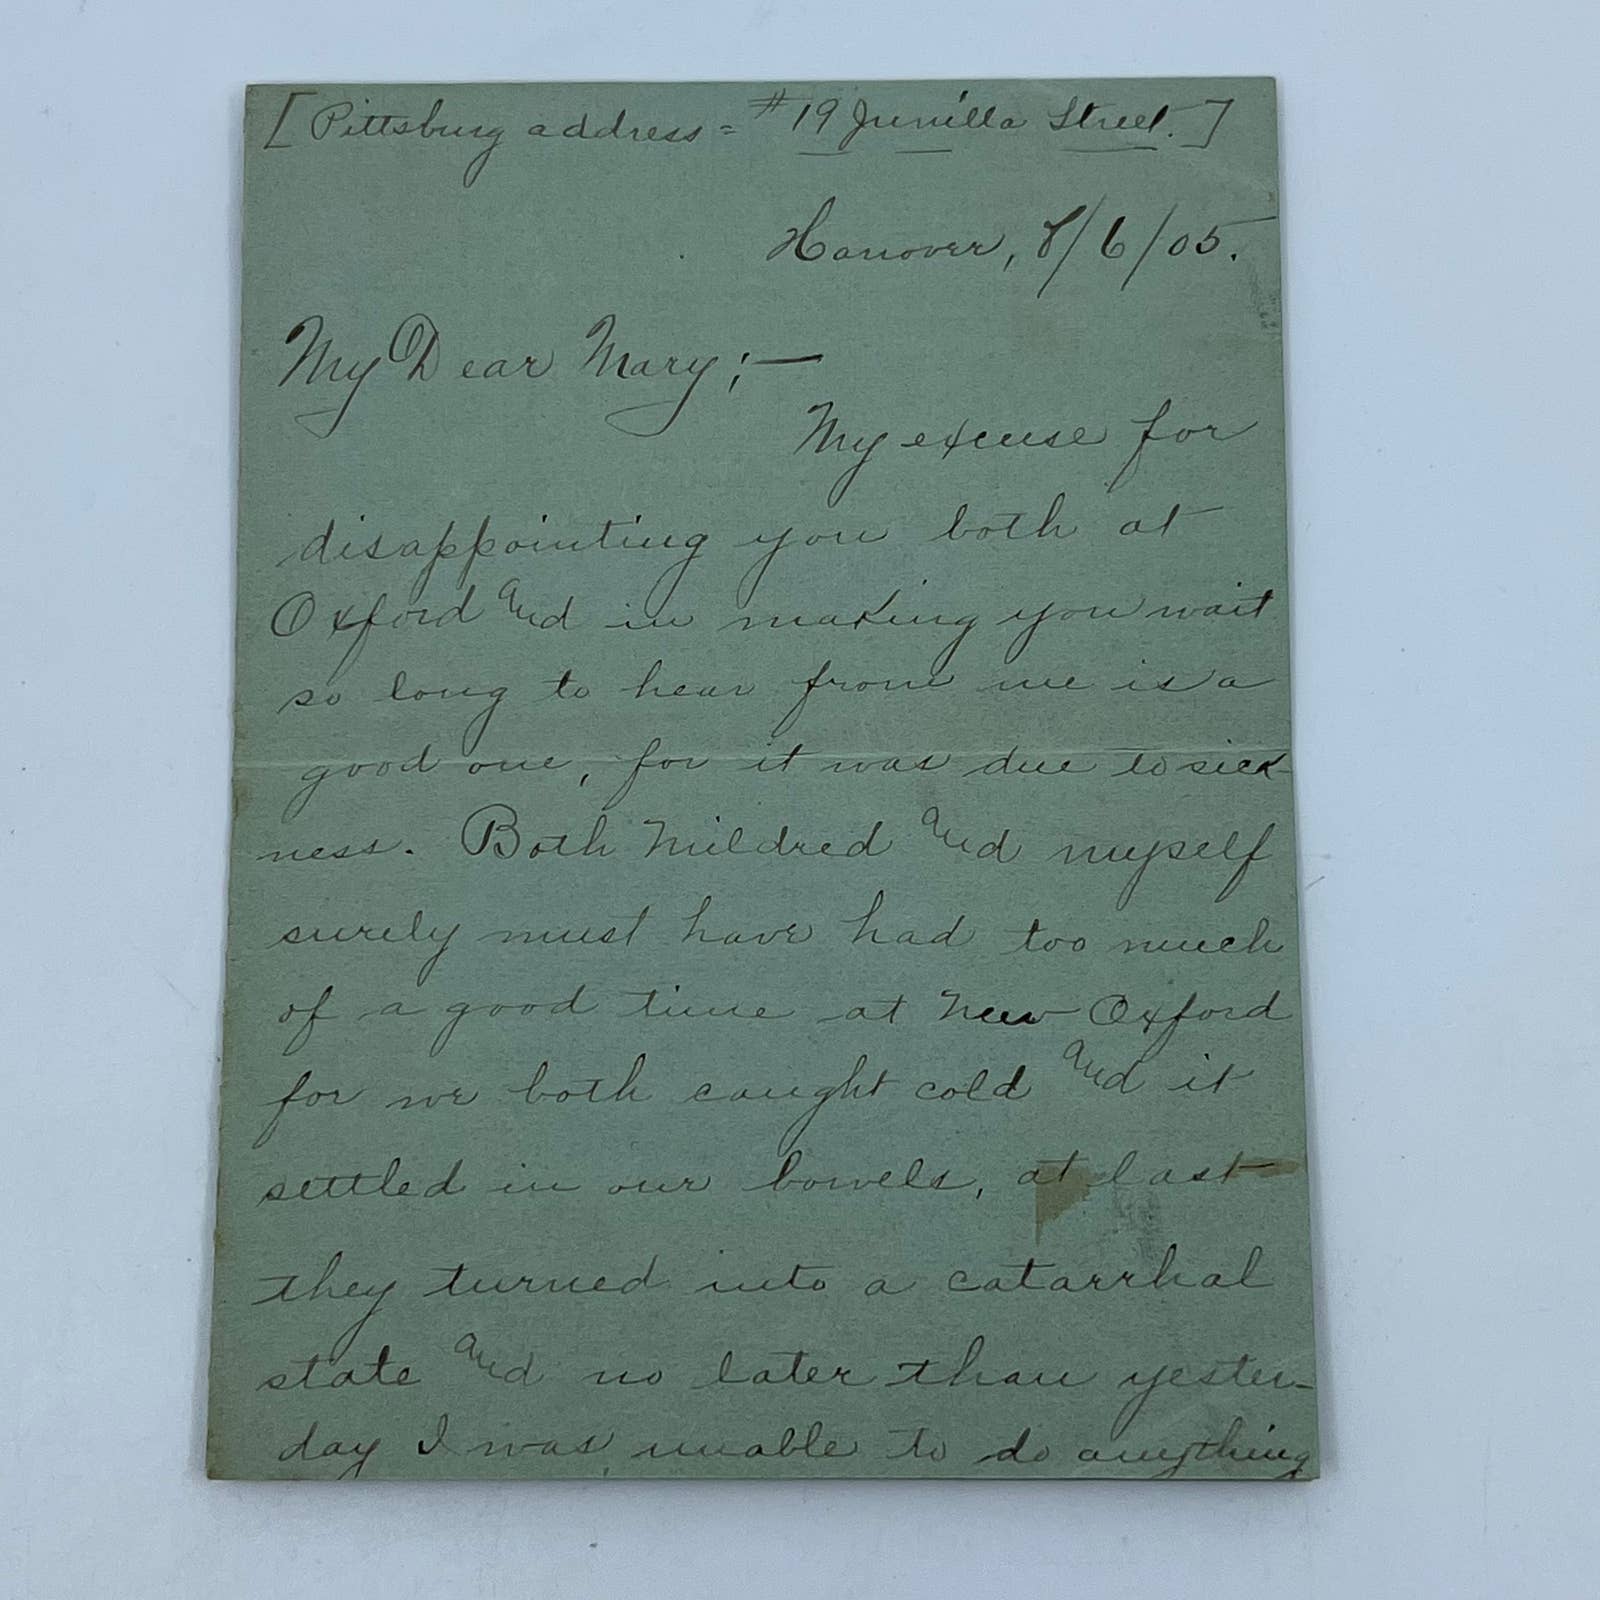 [Pittsburg address = #19 Junilla Street.]
Hanover, 8/6/05.
My Dear Mary;—
My excuse for
disappointing you both at
Oxford and in making you wait
so long to hear from me is a
good one, for it was due to sick-
ness. Both Mildred and myself
surely must have had too much
of a good time at New Oxford
for we both caught cold and it
settled in our bowels, at last
they turned into a catarrhal
state and no later than yester-
day I was unable to do anything